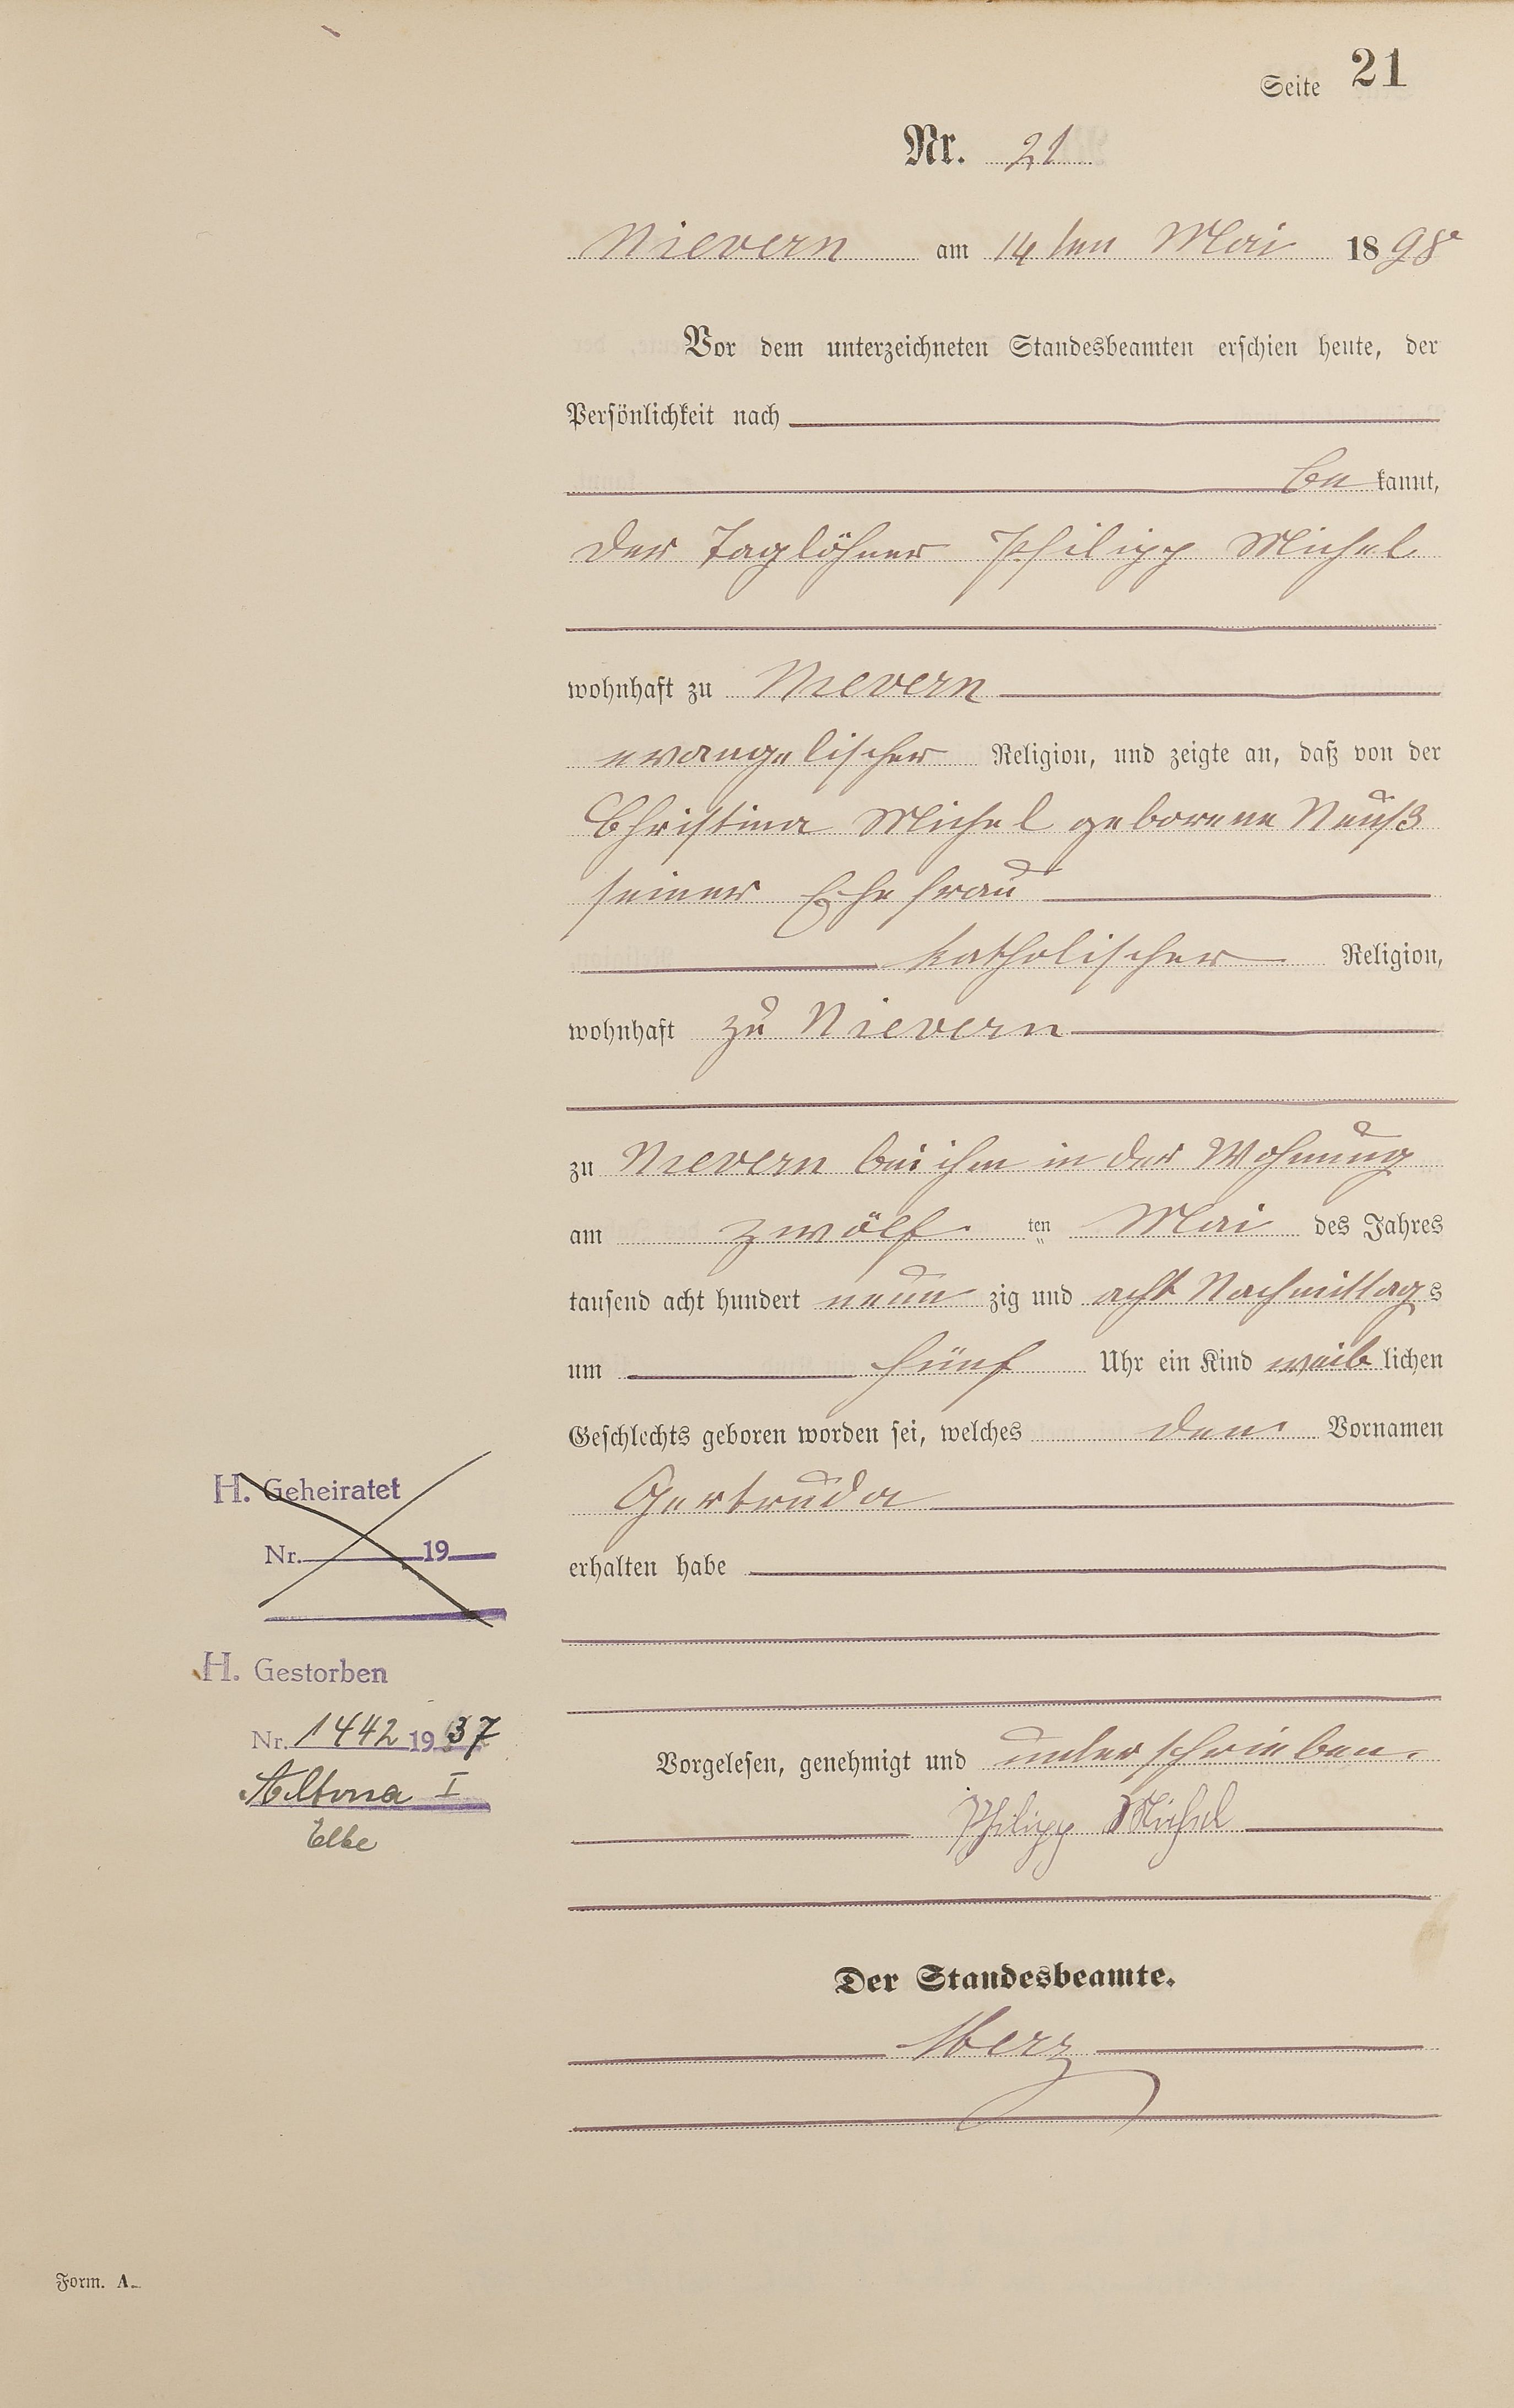 Seite 21
Nr. 21
Nievern am 14ten Mai 1898
Vor dem unterzeichneten Standesbeamten erschien heute, der
Persönlichkeit nach
be kannt,
der Taglöhner Philipp Michel
wohnhaft zu Nievern
evangelischer Religion, und zeigte an, daß von der
Christina Michel geborene Neuß
seiner Ehefrau
katholischer Religion,
wohnhaft zu Nievern
zu Nievern bei ihm in der Wohnung
am zwölf ten Mai des Jahres
tausend acht hundert neun zig und acht Nachmittags
um fünf Uhr ein Kind weib lichen
Geschlechts geboren worden sei, welches den Vornamen
Gertruda
erhalten habe
H. Geheiratet
Nr. 19
H. Gestorben
Nr. 1442 1937
Altona I
Elbe
Vorgelesen, genehmigt und unterschrieben.
Philipp Michel
Der Standesbeamte.
Form. A.